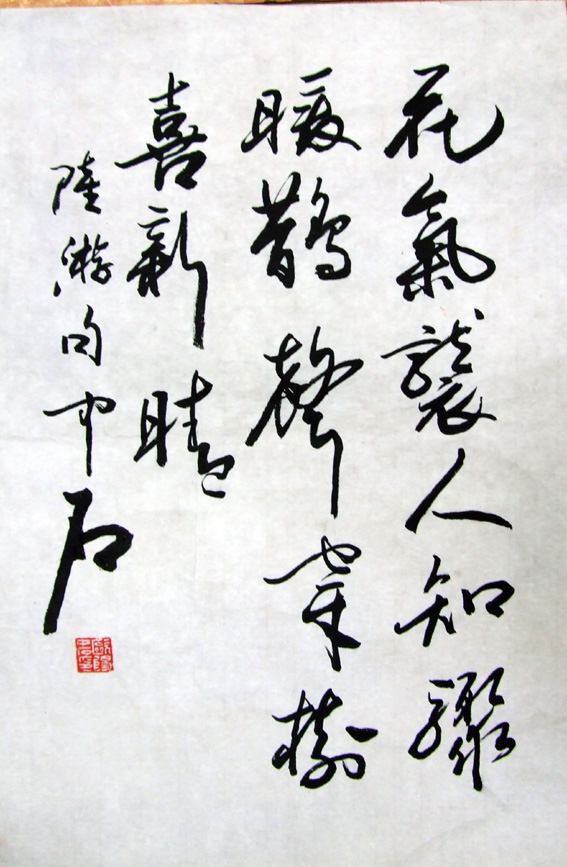 花氣襲人知驟
暖鵲聲穿樹
喜新晴
陸游句中石